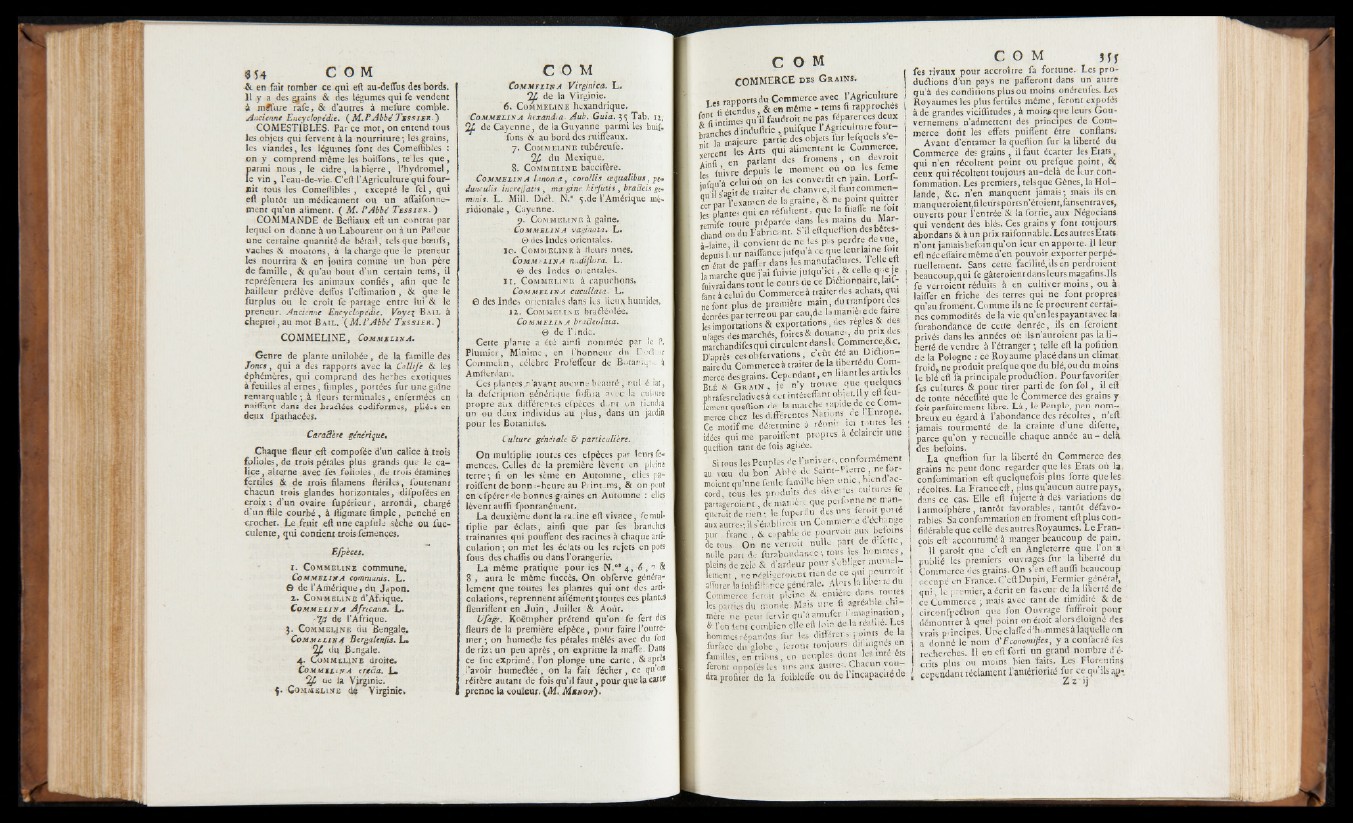 354 COM
& en fait tomber ce qui eſt au-deſſus des bords.
Il y a des grains & des légumes qui ſe vendent
à meſure raſe, & d'autres à meſure comble.
Ancienne Encyclopédie. (M. l'Abbé TESSIER.)
COMESTIBLES. Par ce mot, on entend tous
les objets qui ſervent à la nourriture; les grains,
les viandes, les légumes ſont des Comeſtibles :
on y comprend même les boiſſons, telles que,
parmi nous, le cidre, la bierre, l'hydromel,
le vin, l'eau-de-vie. C'eſt l'Agriculture qui four-
nit tous les Comeſtibles, excepté le ſel, qui
eſt plutôt un médicament ou un aſſaiſonne-
ment qu'un aliment. (M. l'Abbé TESSIER.)
COMMANDE de Beſtiaux eſt un contrat par
lequel on donne à un Laboureur ou à un Paſteur
une certaine quantité de bétail, tels que bœufs,
vaches & moutons, à la charge que le preneur
les nourrira & en jouira comme un bon père
de famille, & qu'au bout d'un certain tems, il
repréſentera les animaux confiés, afin que le
bailleur prélève deſſus l'eſtimation, & que le
ſurplus ou le croît ſe partage entre lui & le
preneur. Ancienne Encyclopédie. Voyez BAIL à
cheptel, au mot BAIL. (M. l'Abbé TESSIER.)
COMMELINE, COMMELINA.
Genre de plante unilobée, de la famille des
Joncs, qui a des rapports avec la Calliſe & les
éphémères, qui comprend des herbes exotiques
à feuilles alternes, ſimples, portées ſur une gaîne
remarquable; à fleurs terminales, enfermées en
naiſſant dans des bractées cordiformes, pliées en
deux ſpathacées.
Caractère générique.
Chaque fleur eſt compoſée d'un calice à trois
folioles, de trois pétales plus grands que le ca-
lice, alterne avec ſes folioles, de trois étamines
fertiles & de trois filamens ſtériles, ſoutenant
chacun trois glandes horizontales, diſpoſées en
croix; d'un ovaire ſupérieur, arrondi, chargé
d'un ſtile courbé, à ſtigmate ſimple, penché en
crochet. Le fruit eſt une capſule sèche ou ſuc-
culente, qui contient trois ſemences.
Eſpèces.
1. COMMELINE commune.
COMMELINA communis. L.
☉ de l'Amérique, du Japon.
2. COMMELINE d'Afrique.
COMMELINA Africana. L.
♃ de l'Afrique.
3. COMMELINE du Bengale.
COMMELINA Bergalenſis. L.
♃ du Bengale.
4. COMMELINE droite.
COMMELINA erecta. L.
♃ de la Virginie.
5. COMMELINE de Virginie.
COM
COMMELINA Virginica. L.
♃ de la Virginie.
6. COMMELINE hexandrique.
COMMELINA hexandra. Aub. Guia. 35 Tab. 12.
♃ de Cayenne, de la Guyanne parmi les buiſ-
ſons & au bord des ruiſſeaux.
7. COMMELINE tubéreuſe.
♃ du Mexique.
8. COMMELINE baccifère.
COMMELINA Zanonia, corollis æqualibus, pe-
dunculis incraſſatis, margine hirſutis, bracteis ge-
minis. L. Mill. Dict. N.° 5. de l'Amérique mé-
ridionale, Cayenne.
9. COMMELINE à gaîne.
COMMELINA vaginata. L.
☉ des Indes orientales.
10. COMMELINE à fleurs nues.
COMMELINA nudiflora. L.
☉ des Indes orientales.
11. COMMELINE à capuchons.
COMMELINA cucullata. L.
☉ des Indes orientales dans les lieux humides.
12. COMMELINE bractéolée.
COMMELINA bracteolata.
☉ de l'Inde.
Cette plante a été ainſi nommée par le P.
Plumier, Minime, en l'honneur du Docteur
Commelin, célèbre Profeſſeur de Botanique à
Amſterdam.
Ces plantes n'ayant aucune beauté, nul éclat,
la deſcription générique ſuffira avec la culture
propre aux différentes eſpèces dont on tiendra
un ou deux individus au plus, dans un jardin
pour les Botaniſtes.
Culture générale & particulière.
On multiplie toutes ces eſpèces par leurs ſe-
mences. Celles de la première lèvent en pleine
terre; ſi on les sème en Automne, elles pa-
roiſſent de bonne-heure au Printems, & on peut
en eſpérer de bonnes graines en Automne : elles
lèvent auſſi ſpontanément.
La deuxième dont la racine eſt vivace, ſe mul-
tiplie par éclats, ainſi que par ſes branches
traînantes qui pouſſent des racines à chaque arti-
culation; on met les éclats ou les rejets en pots
ſous des chaſſis ou dans l'orangerie.
La même pratique pour les N.os 4, 6, 7 &
8, aura le même ſuccès. On obſerve généra-
lement que toutes les plantes qui ont des arti-
culations, reprennent aiſément; toutes ces plantes
fleuriſſent en Juin, Juillet & Août.
Uſage. Kœmpher prétend qu'on ſe ſert des
fleurs de la première eſpèce, pour faire l'outre-
mer; on humecte ſes pétales mêlés avec du ſon
de riz; un peu après, on exprime la maſſe. Dans
ce ſuc exprimé, l'on plonge une carte, & après
l'avoir humectée, on la fait ſécher, ce qu'on
réitère autant de fois qu'il faut, pour que la carte
prenne la couleur. (M. MENON).
COM
COMMERCE DES GRAINS.
Les rapports du Commerce avec l'Agriculture
ſont ſi étendus, & en même-tems ſi rapprochés
& ſi intimes qu'il faudroit ne pas ſéparer ces deux
branches d'induſtrie, puiſque l'Agriculture four-
nit la majeure partie des objets ſur leſquels s'e-
xercent les Arts qui alimentent le Commerce.
Ainſi, en parlant des fromens, on devroit
les ſuivre depuis le moment où on les ſeme
juſqu'à celui où on les convertit en pain. Lorſ-
qu'il s'agit de traiter de chanvre, il faut commen-
cer par l'examen de la graine, & ne point quitter
les plantes qui en réſultent, que la filaſſe ne ſoit
remiſe toute préparée dans les mains du Mar-
chand ou du Fabricant. S'il eſt queſtion des bêtes-
à-laine, il convient de ne les pas perdre de vue,
depuis leur naiſſance juſqu'à ce que leur laine ſoit
en état de paſſer dans les manufactures. Telle eſt
la marche que j'ai ſuivie juſqu'ici, & celle que je
ſuivrai dans tout le cours de ce Dictionnaire, laiſ-
ſant à celui du Commerce à traiter des achats, qui
ne ſont plus de première main, du tranſport des
denrées par terre ou par eau, de la manière de faire
les importations & exportations, des règles & des
uſages des marchés, foires & douanes, du prix des
marchandiſes qui circulent dans le Commerce, &c.
D'après ces obſervations, c'eût été au Diction-
naire du Commerce à traiter de la liberté du Com-
merce des grains. Cependant, en liſant les articles
BLÉ & GRAIN, je n'y trouve que quelques
phraſes relatives à cet intéreſſant objet. Il y eſt ſeu-
lement queſtion de la marche rapide de ce Com-
merce chez les différentes Nations de l'Europe.
Ce motif me détermine à réunir ici toutes les
idées qui me paroiſſent propres à éclaircir une
queſtion tant de fois agitée.
Si tous les Peuples de l'univers, conformément
au vœu du bon Abbé de Saint-Pierre, ne for-
moient qu'une ſeule famille bien unie, bien d'ac-
cord, tous les produits des diverſes cultures ſe
partageroient, de manière que perſonne ne man-
queroit de rien : le ſuperflu des uns ſeroit porté
aux autres; il s'établiroit un Commerce d'échange
pur, franc, & capable de pourvoir aux beſoins
de tous. On ne verroit nulle part de diſette,
nulle part de ſurabondance; tous les hommes,
pleins de zèle & d'ardeur pour s'obliger mutuel-
lement, ne négligeroient rien de ce qui pourroit
aſſurer la ſubſiſtance générale. Alors la liberté du
Commerce ſeroit pleine & entière dans toutes
les parties du monde. Mais une ſi agréable chi-
mère ne peut ſervir qu'à amuſer l'imagination,
& l'on ſent combien elle eſt loin de la réalité. Les
hommes répandus ſur les différens points de la
ſurface du globe, ſeront toujours diſtingués en
familles, en tribus, en peuples dont les intérêts
ſeront oppoſés les uns aux autres. Chacun vou-
dra profiter de la foibleſſe ou de l'incapacité de
COM 355
ſes rivaux pour accroître ſa fortune. Les pro-
ductions d'un pays ne paſſeront dans un autre
qu'à des conditions plus ou moins onéreuſes. Les
Royaumes les plus fertiles même, ſeront expoſés
à de grandes viciſſitudes, à moins que leurs Gou-
vernemens n'admettent des principes de Com-
merce dont les effets puiſſent être conſtans.
Avant d'entamer la queſtion ſur la liberté du
Commerce des grains, il faut écarter les Etats,
qui n'en récoltent point ou preſque point, &
ceux qui récoltent toujours au-delà de leur con-
ſommation. Les premiers, tels que Gènes, la Hol-
lande, &c. n'en manquent jamais; mais ils en
manqueroient, ſi leurs ports n'étoient, ſans entraves,
ouverts pour l'entrée & la ſortie, aux Négocians
qui vendent des blés. Ces grains y ſont toujours
abondans & à un prix raiſonnable. Les autres Etats
n'ont jamais beſoin qu'on leur en apporte. Il leur
eſt néceſſaire même d'en pouvoir exporter perpé-
tuellement. Sans cette facilité, ils en perdroient
beaucoup, qui ſe gâteroient dans leurs magaſins. Ils
ſe verroient réduits à en cultiver moins, ou à
laiſſer en friche des terres qui ne ſont propres
qu'au froment. Comme ils ne ſe procurent certai-
nes commodités de la vie qu'en les payant avec la
ſurabondance de cette denrée, ils en ſeroient
privés dans les années où ils n'auroient pas la li-
berté de vendre à l'étranger; telle eſt la poſition
de la Pologne : ce Royaume placé dans un climat
froid, ne produit preſque que du blé, ou du moins
le blé eſt ſa principale production. Pour favoriſer
ſes cultures & pour tirer parti de ſon ſol, il eſt
de toute néceſſité que le Commerce des grains y
ſoit parfaitement libre. Là, le Peuple, peu nom-
breux eu égard à l'abondance des récoltes, n'eſt
jamais tourmenté de la crainte d'une diſette,
parce qu'on y recueille chaque année au-delà
des beſoins.
La queſtion ſur la liberté du Commerce des
grains ne peut donc regarder que les Etats où la
conſommation eſt quelquefois plus forte que les
récoltes. La France eſt, plus qu'aucun autre pays,
dans ce cas. Elle eſt ſujette à des variations de
l'atmoſphère, tantôt favorables, tantôt défavo-
rables. Sa conſommation en froment eſt plus con-
ſidérable que celle des autres Royaumes. Le Fran-
çois eſt accoutumé à manger beaucoup de pain.
Il paroît que c'eſt en Angleterre que l'on a
publié les premiers ouvrages ſur la liberté du
Commerce des grains. On s'en eſt auſſi beaucoup
occupé en France. C'eſt Dupin, Fermier général,
qui, le premier, a écrit en faveur de la liberté de
ce Commerce; mais avec tant de timidité & de
circonſpection que ſon Ouvrage ſuffiroit pour
démontrer à quel point on étoit alors éloigné des
vrais principes. Une claſſe d'hommes à laquelle on
a donné le nom d'Economiſtes, y a conſacré ſes
recherches. Il en eſt ſorti un grand nombre d'é-
crits plus ou moins bien faits. Les Florentins
cependant réclament l'antériorité ſur ce qu'ils ap-
Zz ij